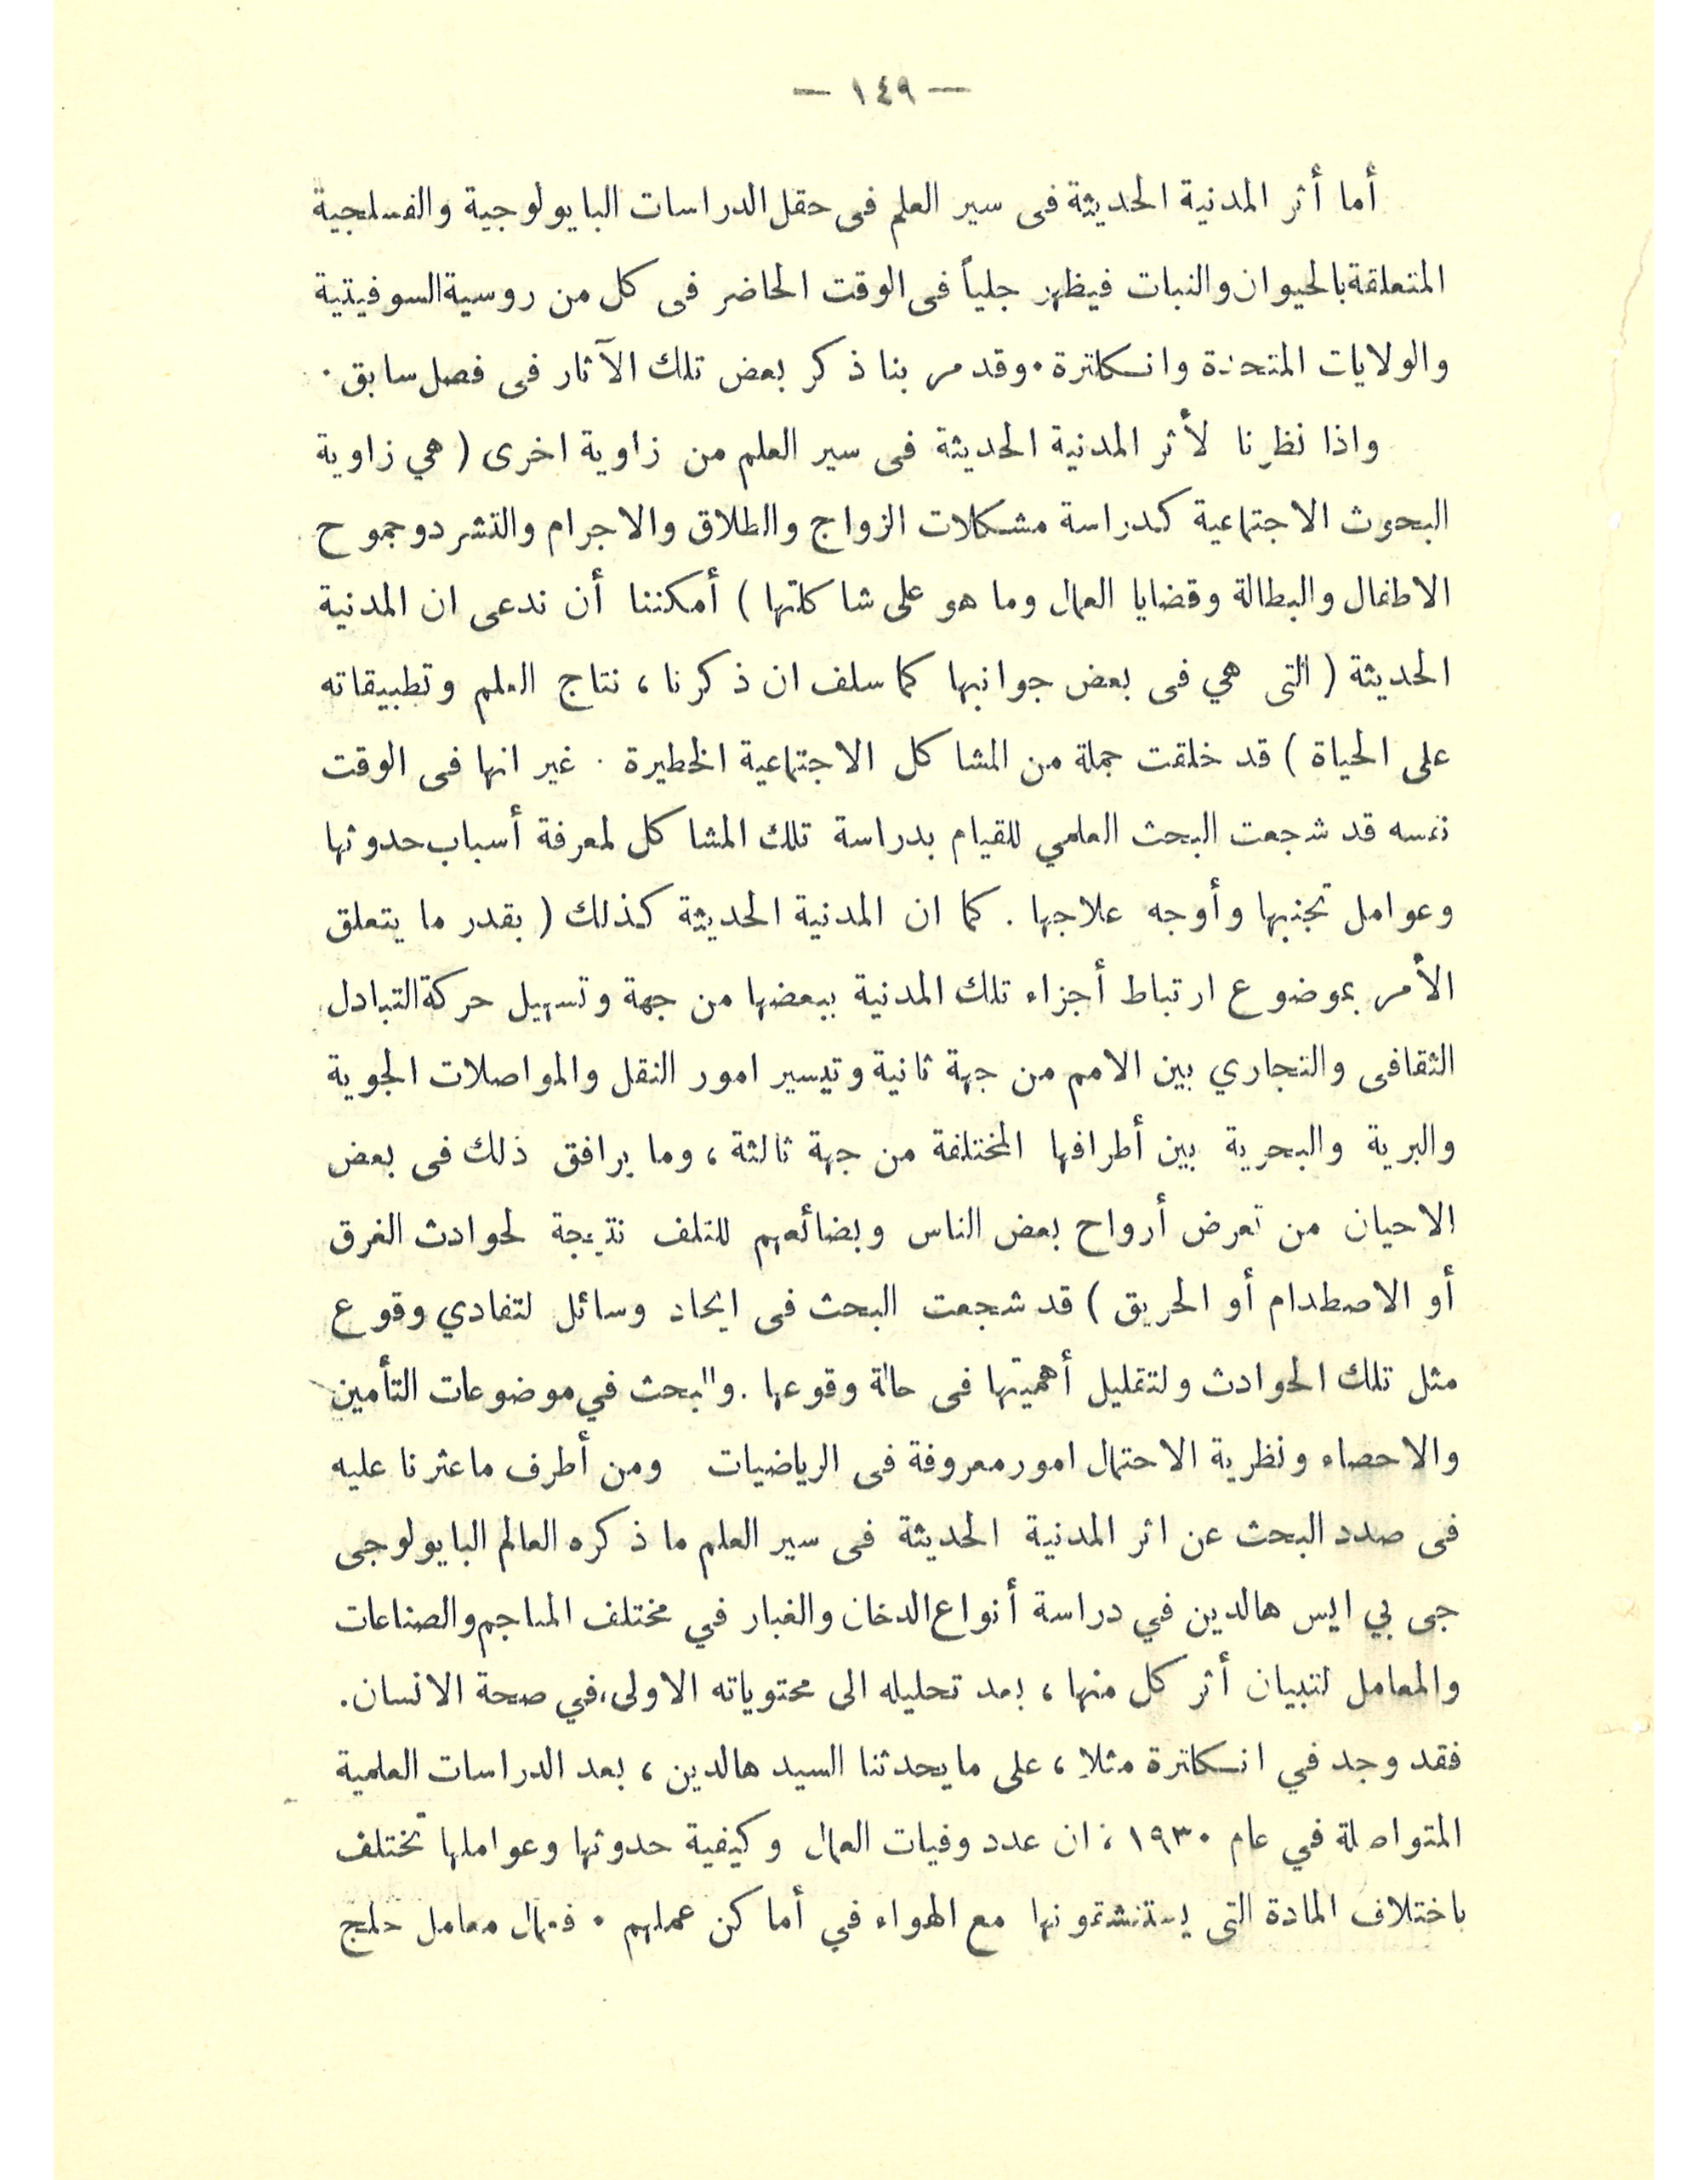 — ١٤٩ —
أما أثر المدنية الحديثة فى سير العلم فى حقل الدراسات البايولوجية والفسلجية
المتعلقة بالحيوان والنبات فيظهر جلياً فى الوقت الحاضر فى كل من روسية السوفيتية
والولايات المتحدة وانكلترة . وقد مر بنا ذكر بعض تلك الآثار فى فصل سابق .
واذا نظرنا لأثر المدنية الحديثة فى سير العلم من زاوية اخرى ( هي زاوية
البحوث الاجتماعية كدراسة مشكلات الزواج والطلاق والاجرام والتشرد وجموح
الاطفال والبطالة وقضايا العمال وما هو على شاكلتها ) أمكننا أن ندعى ان المدنية
الحديثة ( التى هي فى بعض جوانبها كما سلف ان ذكرنا ، نتاج العلم وتطبيقاته
على الحياة ) قد خلقت جملة من المشاكل الاجتماعية الخطيرة . غير انها فى الوقت
نفسه قد شجعت البحث العلمي للقيام بدراسة تلك المشاكل لمعرفة أسباب حدوثها
وعوامل تجنبها وأوجه علاجها . كما ان المدنية الحديثة كذلك ( بقدر ما يتعلق
الأمر بموضوع ارتباط أجزاء تلك المدنية ببعضها من جهة وتسهيل حركة التبادل
الثقافى والتجاري بين الامم من جهة ثانية وتيسير امور النقل والمواصلات الجوية
والبرية والبحرية بين أطرافها المختلفة من جهة ثالثة ، وما يرافق ذلك فى بعض
الاحيان من تعرض أرواح بعض الناس وبضائعهم للتلف نتيجة لحوادث الغرق
أو الاصطدام أو الحريق ) قد شجعت البحث فى ايجاد وسائل لتفادي وقوع
مثل تلك الحوادث ولتقليل أهميتها فى حالة وقوعها . والبحث في موضوعات التأمين
والاحصاء ونظرية الاحتمال امور معروفة فى الرياضيات ومن أطرف ما عثرنا عليه
فى صدد البحث عن اثر المدنية الحديثة فى سير العلم ما ذكره العالم البايولوجى
جى بي ايس هالدين في دراسة أنواع الدخان والغبار في مختلف المناجم والصناعات
والمعامل لتبيان أثر كل منها ، بعد تحليله الى محتوياته الاولى ، في صحة الانسان .
فقد وجد في انكلترة مثلا ، على ما يحدثنا السيد هالدين ، بعد الدراسات العلمية
المتواصلة في عام ١٩٣٠ ، ان عدد وفيات العمال وكيفية حدوثها وعواملها تختلف
باختلاف المادة التى يستنشقونها مع الهواء في أماكن عملهم . فعمال معامل حلج